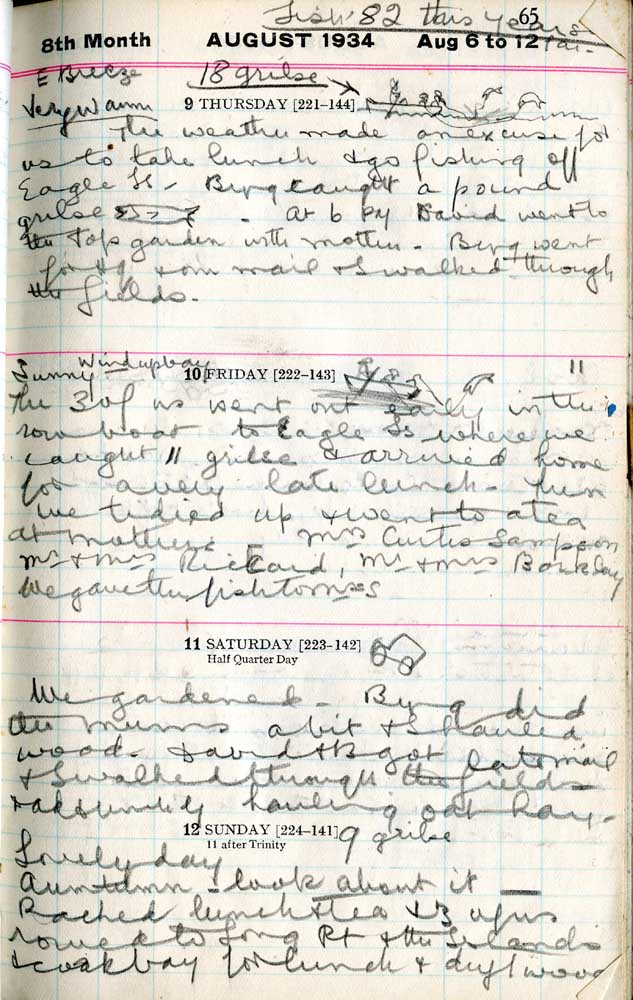 Fish 82 this year
65
8th Month AUGUST 1934 Aug 6 to 12
E Breeze 18 grilse
Very warm 9 THURSDAY [221–144]
The weather made an excuse for
us to take lunch & go fishing off
Eagle Is – caught a pound
grilse – At 6 PM David went to
the Top garden with mother – went
for mail & I walked through
the fields.
Sunny Windup bay 10 FRIDAY [222–143] 11
The 3 of us went out early in the
row boat to Eagle Is where we
caught 11 grilse & arrived home
for a very late lunch – Then
we tidied up & went to a tea
at mothers – Mrs Curtis Sampson
Mr & Mrs Rickard, Mr & Mrs
We gave the fish to
11 SATURDAY [223–142]
Half Quarter Day
We gardened – did
the mums a bit & I hauled
wood – David & B got late mail
& I walked through the fields
hauling oat hay –
12 SUNDAY [224–141] 9 grilse
11 after Trinity
Lovely day
look about it
lunch & tea & 3 of us
rowed to Long Pt & the Islands
& bay for lunch & driftwood